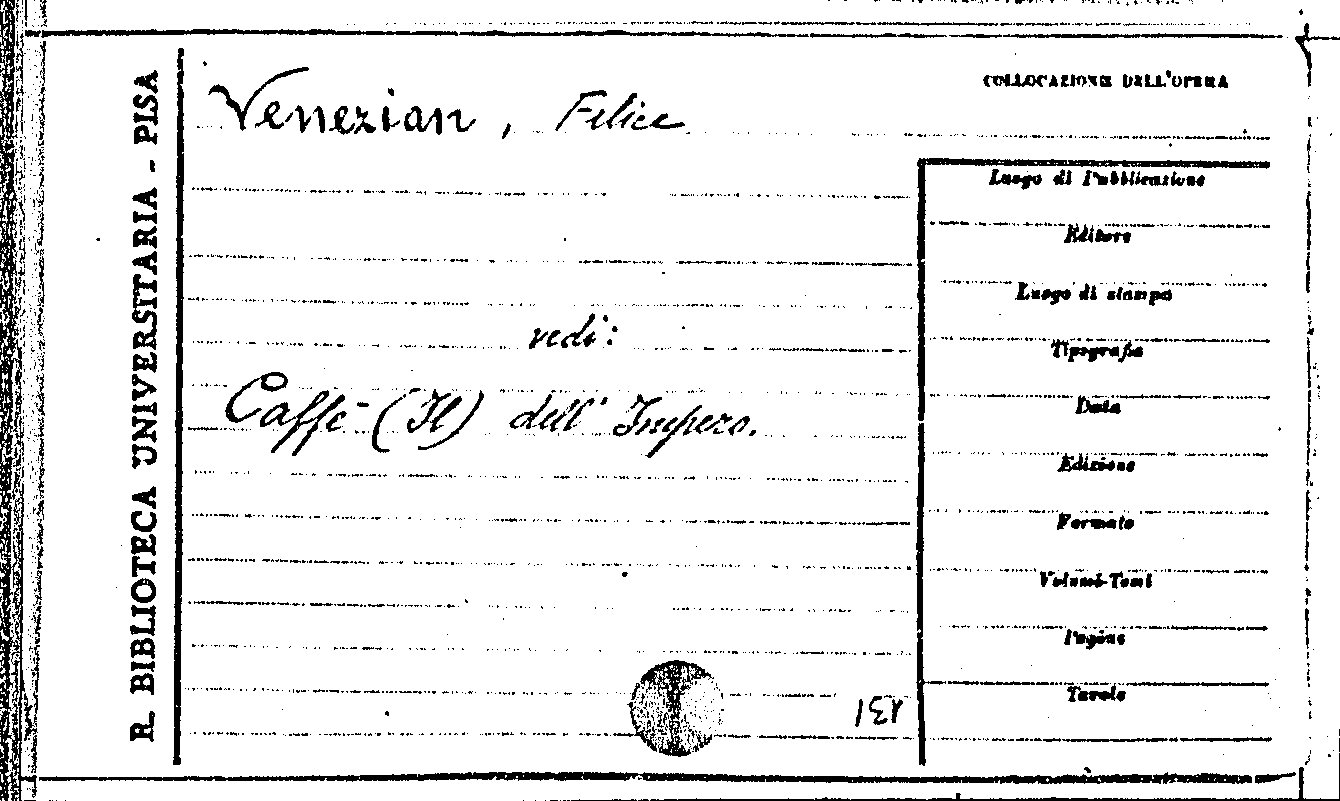 R. BIBLIOTECA UNIVERSITARIA - PISA
Venezian, Felice
vedi:
Caffè (Il) dell' Impero.
131
COLLOCAZIONE DELL'OPERA
Luogo di Pubblicazione
Editore
Luogo di stampa
Tipografia
Data
Edizione
Formato
Volumi-Tomi
Pagine
Tavole